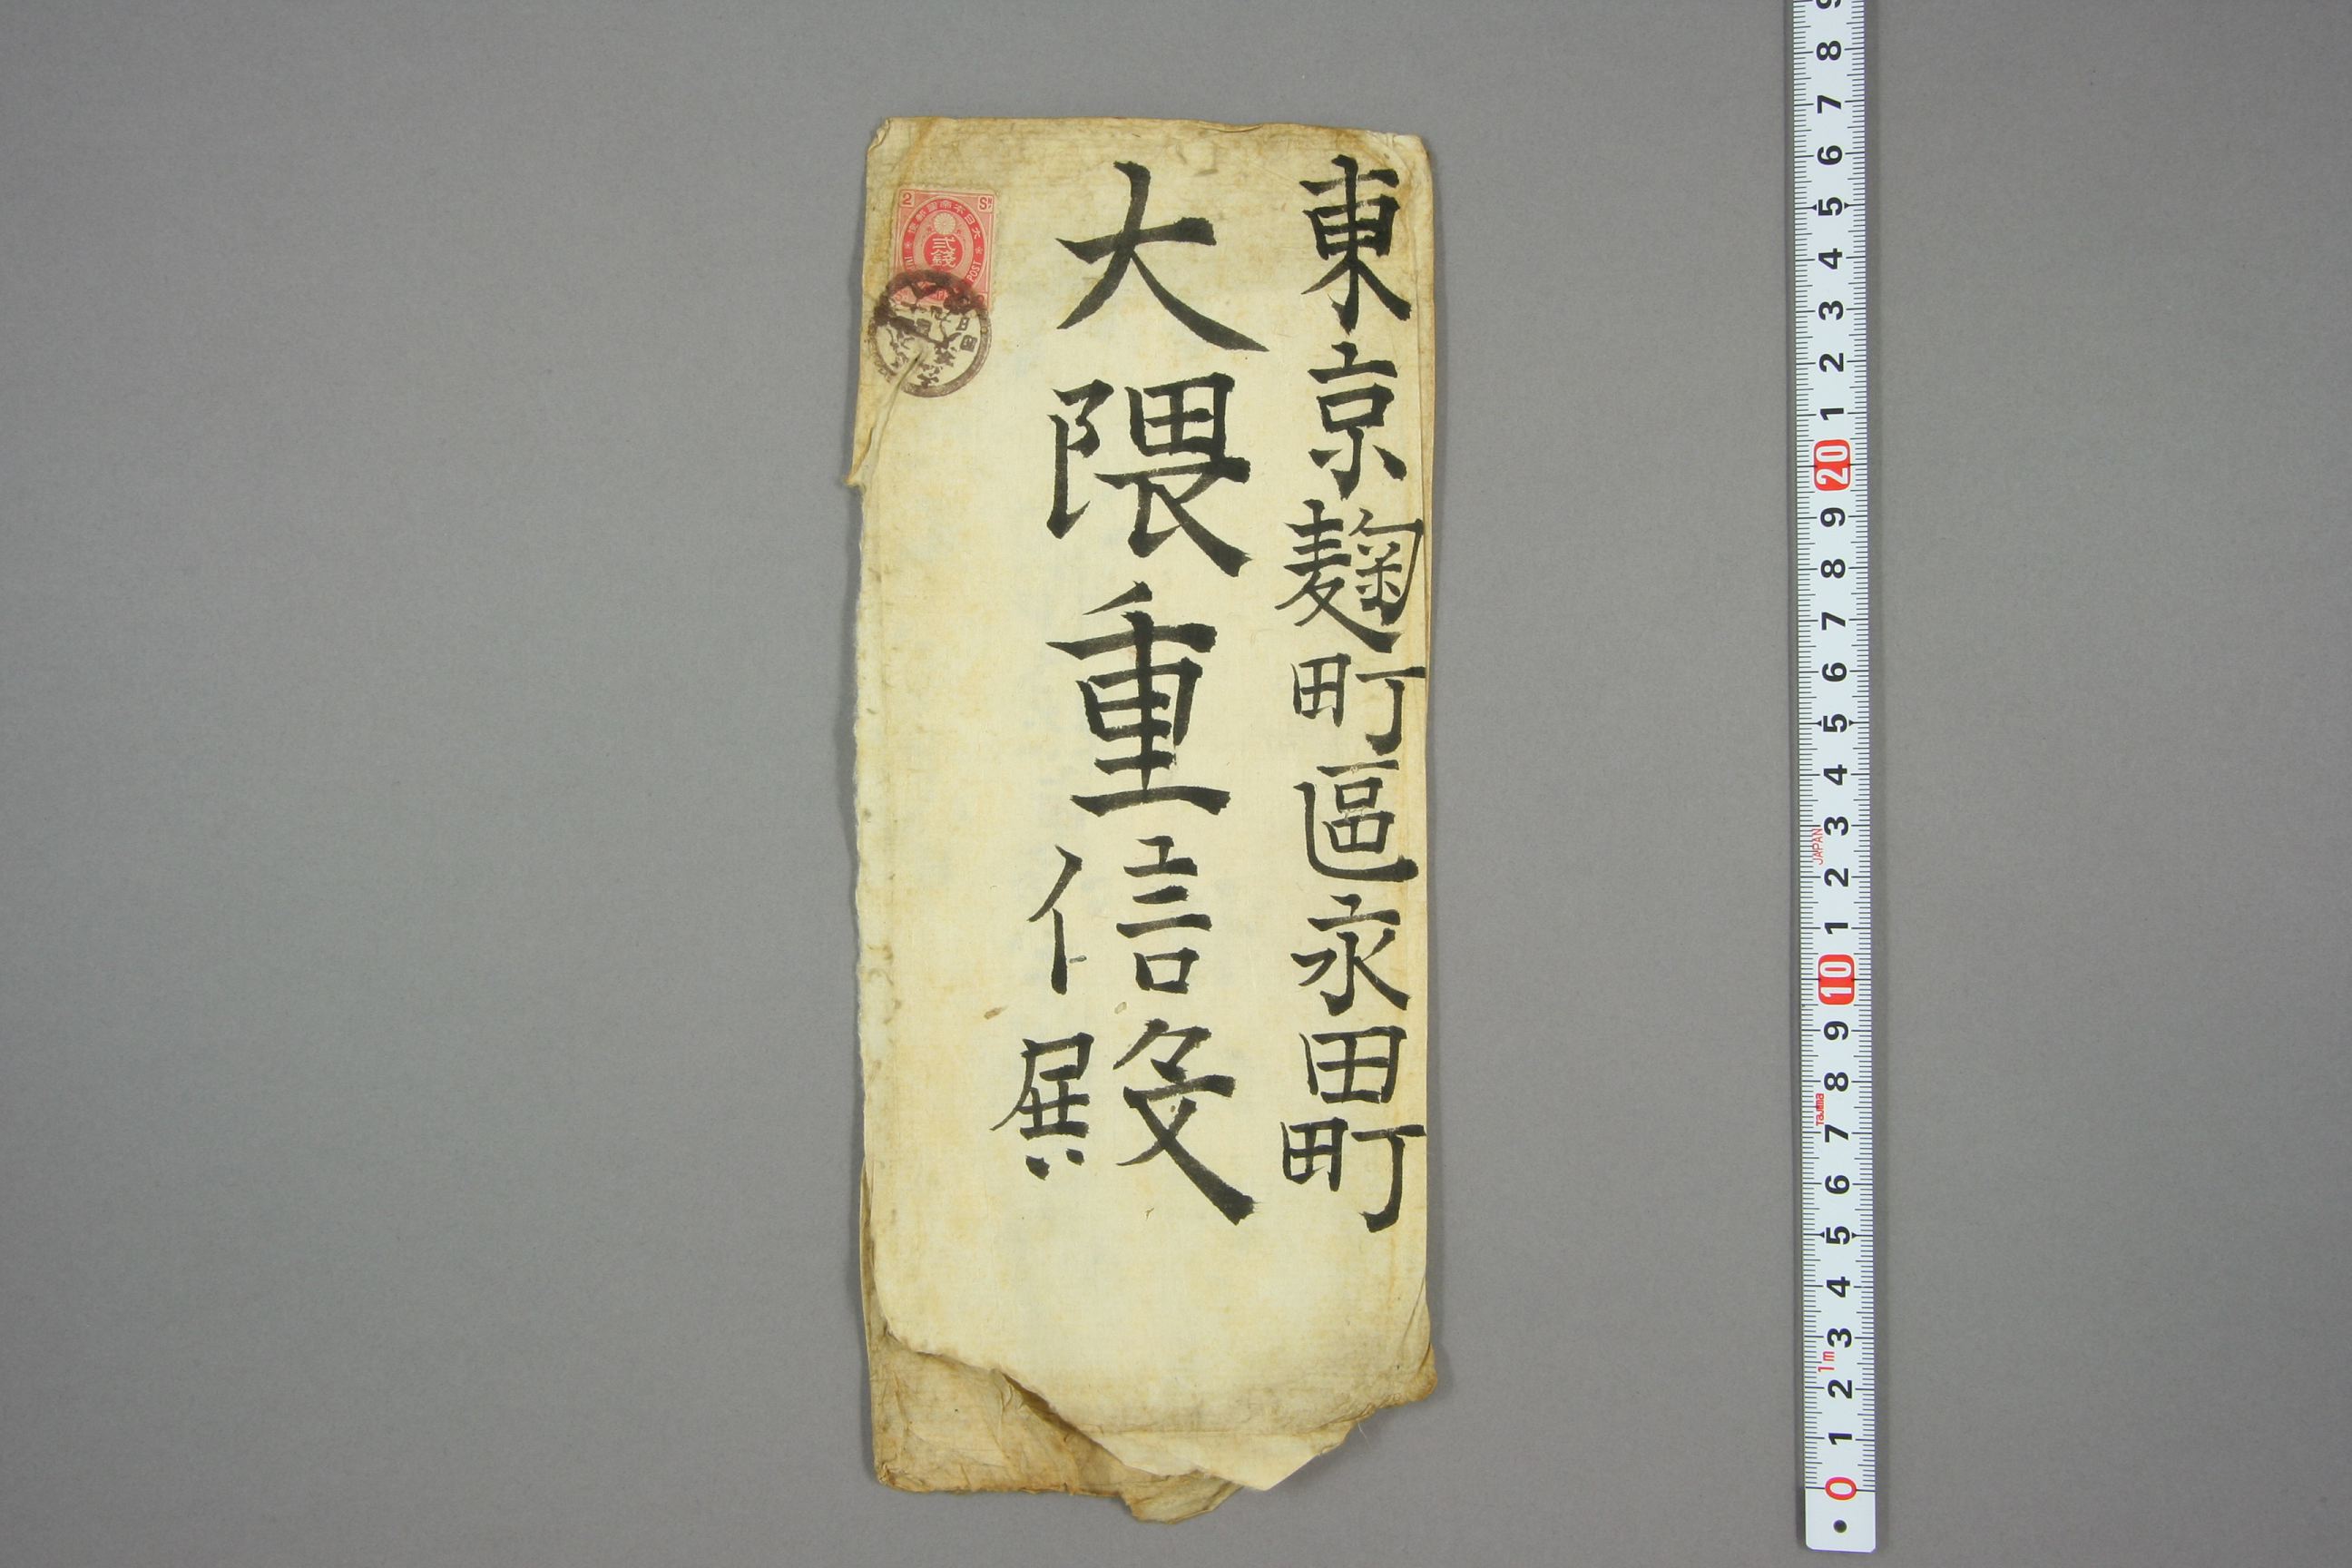 東京麹町區永田町
大隈重信殿
2 Sn
大日本帝國郵便
弐錢
POST
0 1 2 3 4 5 6 7 8 9 10 1 2 3 4 5 6 7 8 9 20 1 2 3 4 5 6 7 8 9
1m
Tajima
JAPAN